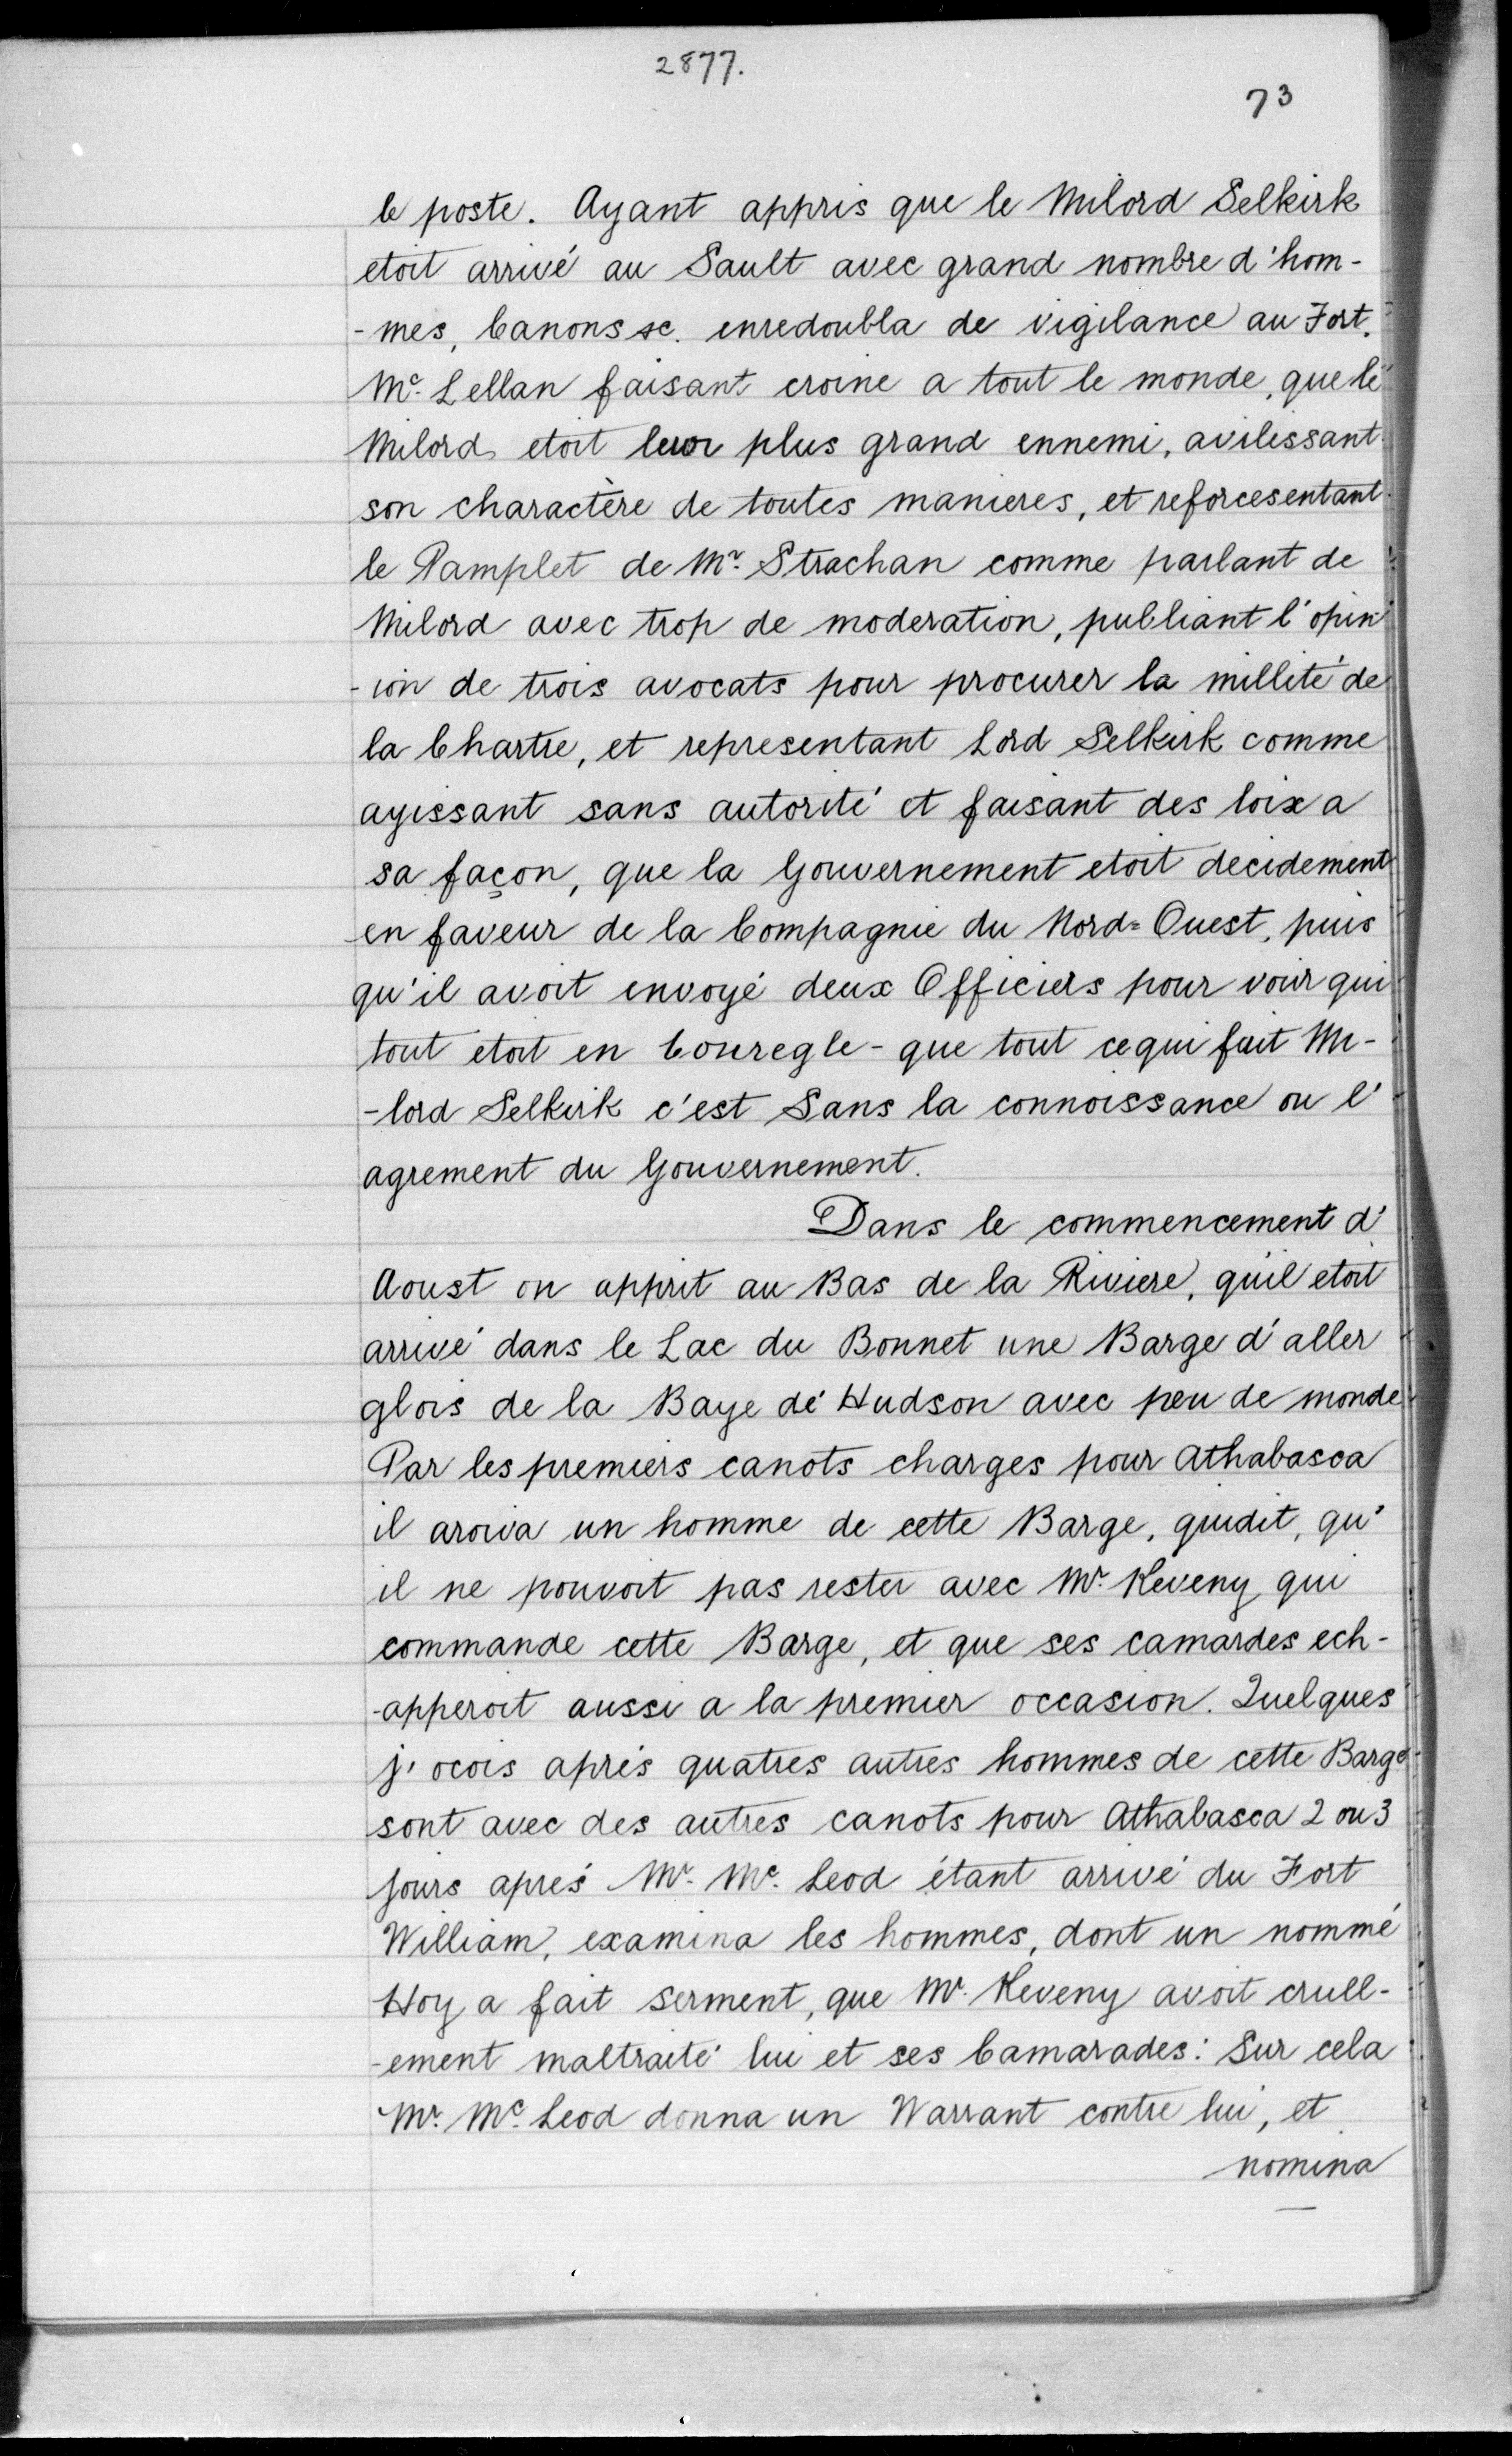 2877.
73
le poste. Ayant appris que le Milord Selkirk
etoit arrivé au Sault avec grand nombre d'hom-
-mes, Canons &c. enredoubla de vigilance au Fort.
Mc. Lellan faisant croine a tout le monde, que le
Milord etoit leur plus grand ennemi, avilissant
son charactère de toutes manieres, et reforcesentant
le Pamplet de Mr. Strachan comme parlant de
Milord avec trop de moderation, publiant l'opin-
-ion de trois avocats pour procurer la millité de
la Chartre, et representant Lord Selkirk comme
agissant sans autorité et faisant des loix a
sa façon, que la Gouvernement etoit decidement
en faveur de la Compagnie du Nord=Ouest, puis
qu'il avoit envoyé deux Officiers pour voir qui
tout etoit en Couregle - que tout cequi fait Mi-
-lord Selkirk c'est Sans la connoissance ou l'
agrement du Gouvernement.
Dans le commencement d'
Aoust on apprit au Bas de la Riviere, qu'il etoit
arrivé dans le Lac du Bonnet une Barge d'aller
glois de la Baye dé Hudson avec peu de monde
Par les premiers canots charges pour Athabasca
il aroiva un homme de cette Barge, quidit, qu'
il ne pouvoit pas rester avec Mr. Keveny qui
commande cette Barge, et que ses camardes ech-
-apperoit aussi a la premier occasion. Quelques
j'ocois aprés quatres autres hommes de cette Barge
sont avec des autres canots pour Athabasca 2 ou 3
jours aprés Mr. Mc. Leod étant arrivé du Fort
William, examina les hommes, dont un nommé
Hoy a fait serment, que Mr. Keveny avoit crull-
-ement maltraité lui et ses Camarades: Sur cela
Mr. Mc. Leod donna un Warrant contre lui, et
nomina